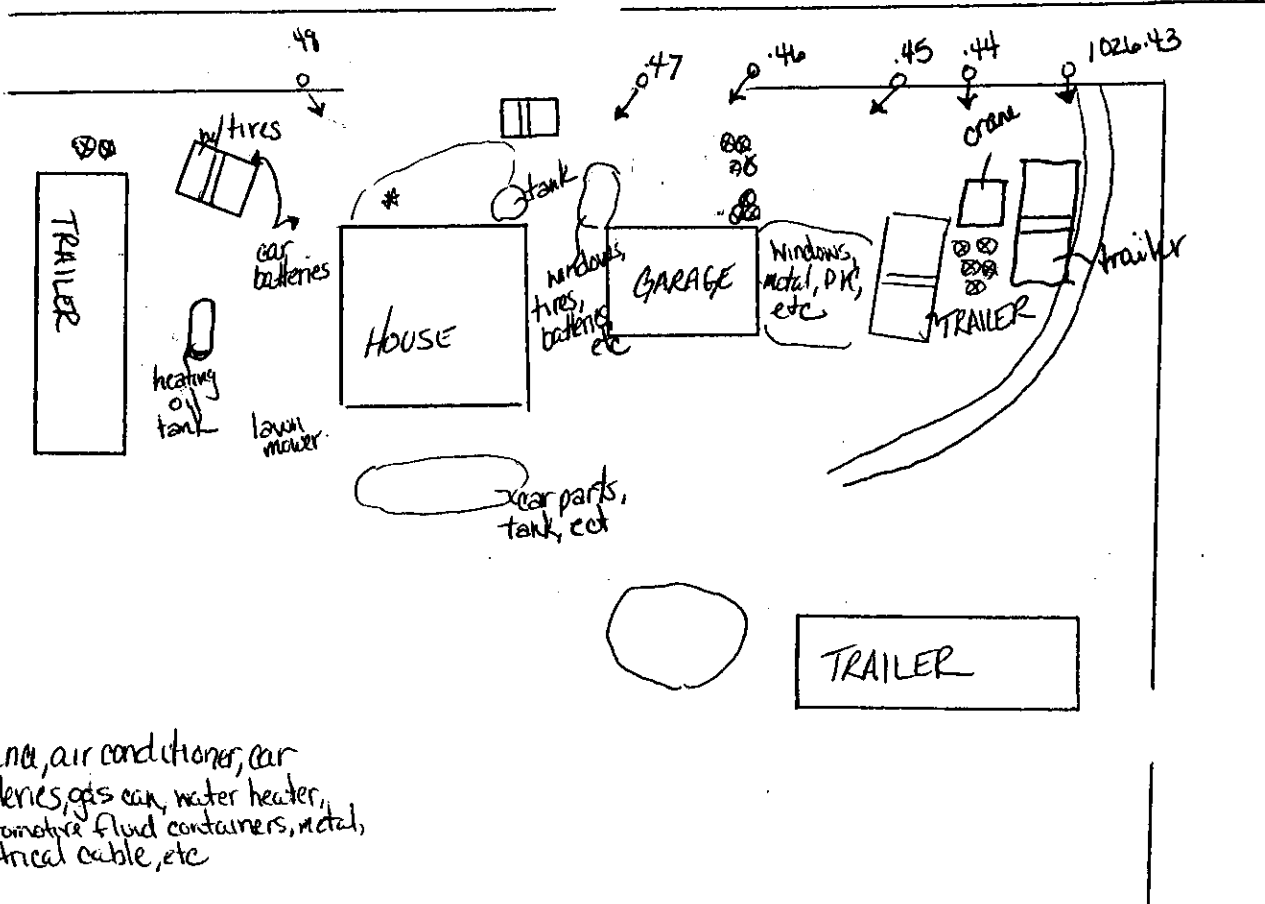 .48
.47
.46
.45
.44
1026.43
crane
w/tires
tank
TRAILER
car
batteries
windows,
tires,
batteries
etc
GARAGE
windows,
metal, 
etc
trailer
TRAILER
HOUSE
heating
oil
tank
lawn
mower
car parts,
tank, ect
TRAILER
air conditioner, car
teries, gas can, water heater,
omotive fluid containers, metal,
trical cable, etc